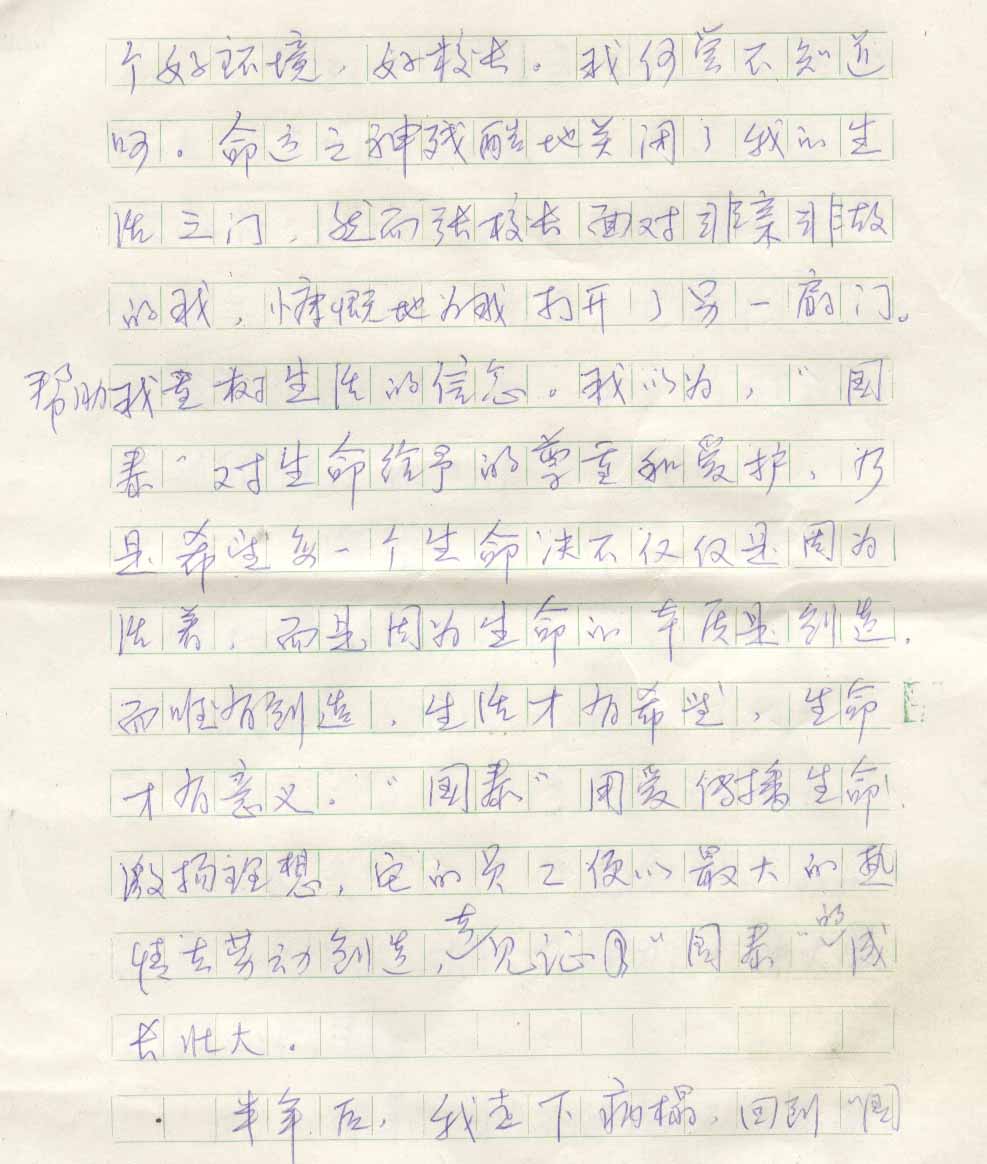 个好环境，好校长。我何尝不知道
呵。命运之神残酷地关闭了我的生
活之门，然而张校长面对非亲非故
的我，慷慨地为我打开了另一扇门。
帮助我重树生活的信念。我以为，“国
泰”对生命给予的尊重和爱护，乃
是希望每一个生命决不仅仅是因为
活着，而是因为生命的本质是创造，
而唯有创造，生活才有希望，生命
才有意义。“国泰”用爱传播生命
激扬理想，它的员工便以最大的热
情去劳动创造，去见证“国泰”的成
长壮大。
半年后，我走下病榻，回到“国